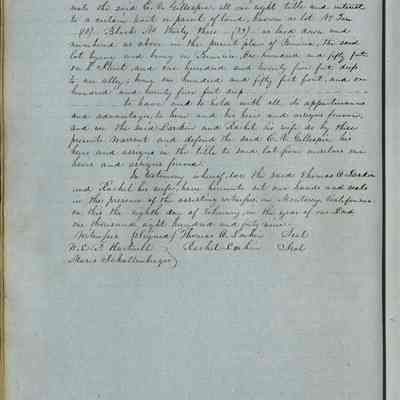 unto the said C. V. Gillespie all our right title and interest
to a certain part or parcel of land, known as lot No Ten
(10). Block No thirty three (33) as laid down and
numbered as above in the present plan of Benicia, the said
lot lying and being in Benicia. One hundred and fifty feet
on Street and one hundred and twenty five feet deep
to an alley, being one hundred and fifty feet front, and one
hundred and twenty five feet deep
to have and to hold with all its appurtenances
and advantages, to him and his heirs and assigns forever,
and we the said Larkin and Rachel his wife do by these
presents Warrant and defend the said C. V. Gillespie his
heirs and assigns in the title to said lot from ourselves our
heirs and assigns forever.
In testimony whereof, we the said Thomas O. Larkin
and Rachel his wife, have hereunto set our hands and seals
in the presence of the assisting witnesses, in Monterey, California
on this the eighth day of February in the year of our Lord
one thousand eight hundred and forty nine.
Witnesses Signed Thomas O. Larkin Seal
W. E. P. Hartnell Rachel Larkin Seal
Maria Schallenberger